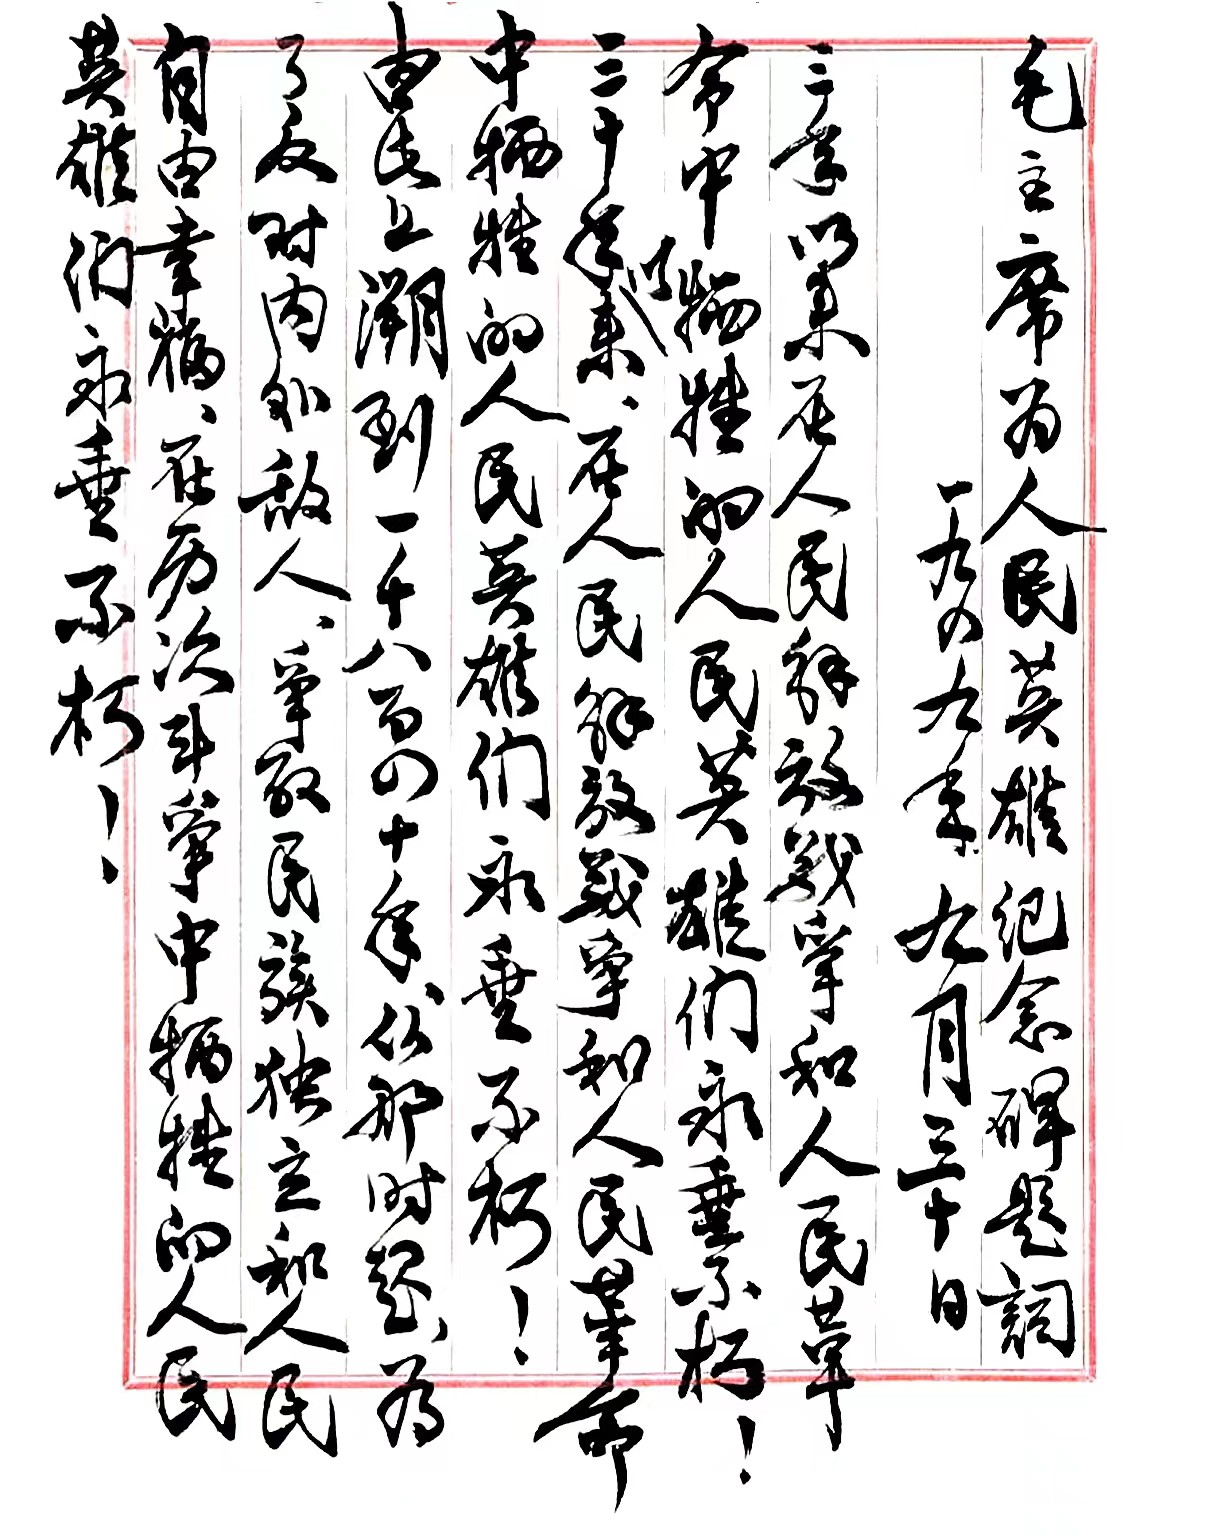 毛主席为人民英雄纪念碑题词
一九四九年九月三十日
三年以来在人民解放战争和人民革
命中牺牲的人民英雄们永垂不朽！
三十年以来、在人民解放战争和人民革命
中牺牲的人民英雄们永垂不朽！
由此上溯到一千八百四十年、从那时起、为
了反对内外敌人、争取民族独立和人民
自由幸福、在历次斗争中牺牲的人民
英雄们永垂不朽！